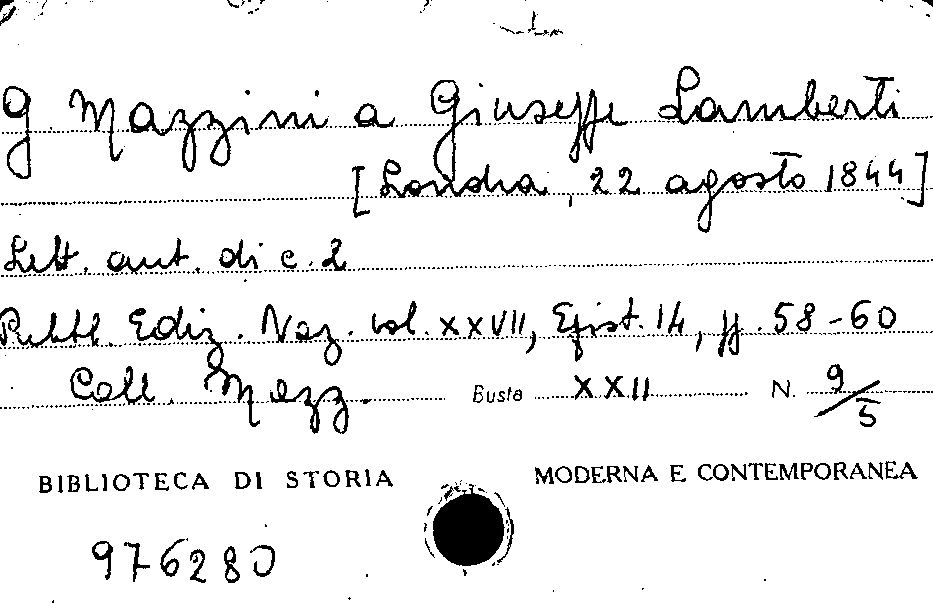 G. Mazzini a Giuseppe Lamberti
[Londra, 22 agosto 1844]
Lett. aut. di c. 2
Pubbl. Ediz. Naz. vol. XXVII, Epist. 14, pp. 58-60
Coll. Mazz. Busta XXII N. 9/5
BIBLIOTECA DI STORIA MODERNA E CONTEMPORANEA
976280